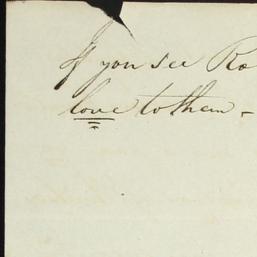 If you see Ro
love to them -